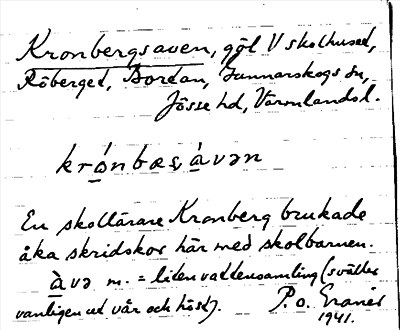 Kronbergsaven, göl V skolhuset,
Röberget, Bordan, Gunnarskogs sn,
Jösse hd, Värmlands l.
krónbæsàvən
En skollärare Kronberg brukade
åka skridskor här med skolbarnen.
àvə m. = liten vattensamling (sväller
vanligen ut vår och höst). P. O.
1941.